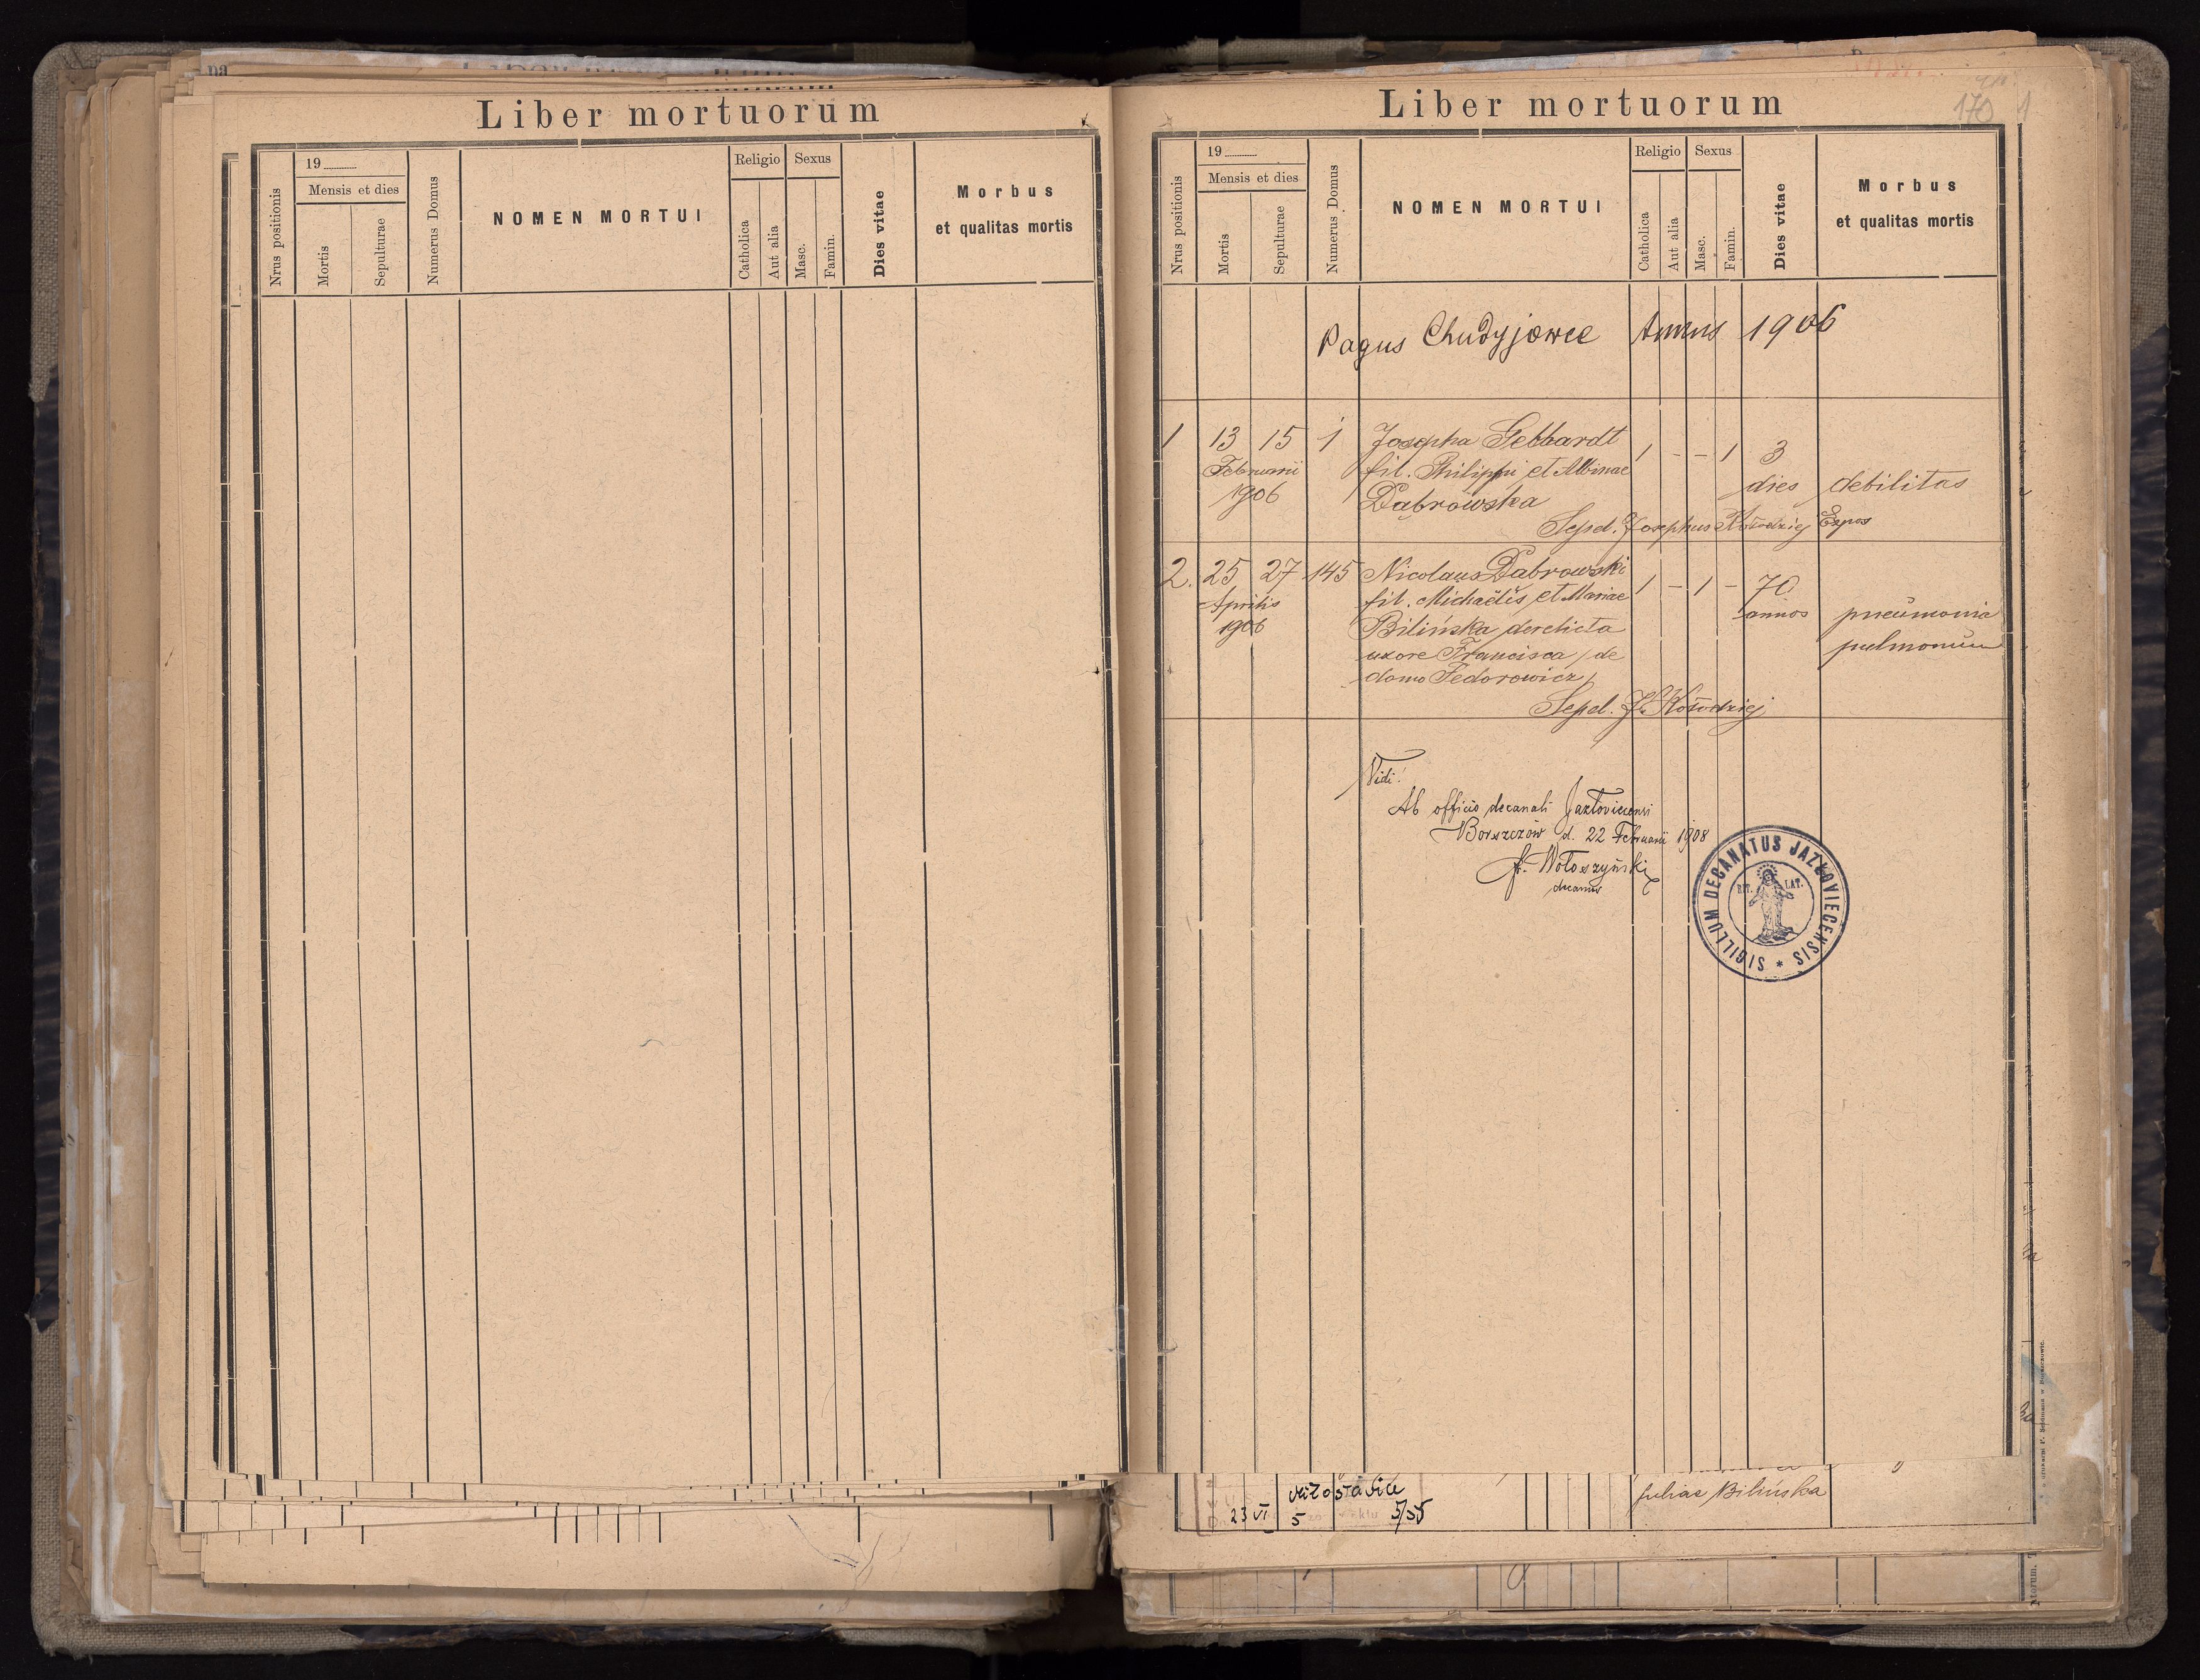 Liber mortuorum
Nrus positionis
19
Mensis et dies
Mortis
Sepulturae
Numerus Domus
NOMEN MORTUI
Religio
Catholica
Aut alia
Sexus
Masc.
Famin.
Dies vitae
Morbus
et qualitas mortis
Liber mortuorum
170
Nrus positionis
19
Mensis et dies
Mortis
Sepulturae
Numerus Domus
NOMEN MORTUI
Religio
Catholica
Aut alia
Sexus
Masc.
Famin.
Dies vitae
Morbus
et qualitas mortis
Pagus Chudyjowce Annus 1906
1 13 15 1 Josepha Gebhardt 1 - - 1 3
Februarii fil. Philippi et Albinae
1906 Dąbrowska dies debilitas
Sepel. Josephus Kołodziej Expos
2. 25 27 145 Nicolaus Dąbrowski 1 - 1 - 70
Aprilis fil. Michaëlis et Mariae annos pneumonia
1906 Bilińska derelicta pulmonum
uxore Francisca /de
domo Fedorowicz/
Sepel. J. Kołodziej
Vidi!
Ab officio decanali Jazłoviecensi
Borszczów d. 22 Februarii 1908
Wołoszyński
decanus
SIGILLUM DECANATUS JAZŁOVIECENSIS *
RIT. LAT.
23 VI 5 5/55
Juliae Bilińska